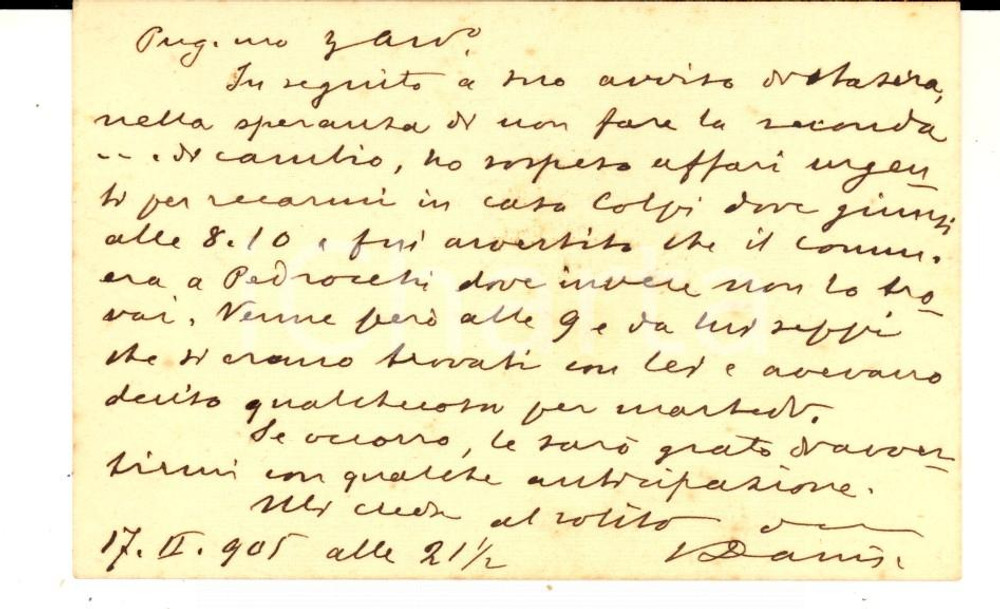 In seguito a suo avviso di stasera,
nella speranza di non fare la seconda
... di cambio, ho sospeso affari urgen-
ti per recarmi in casa Colpi dove giunsi
alle 8.10 e fui avvertito che il comm.
era a Pedrocchi dove invece non lo tro-
vai. Venne però alle 9 e da lui seppi
che si erano trovati con lei e avevano
deciso qualchecosa per martedì.
Se occorro, le sarò grato di avver-
tirmi con qualche anticipazione.
Mi creda al solito
17. II. 905 alle 21 1/2